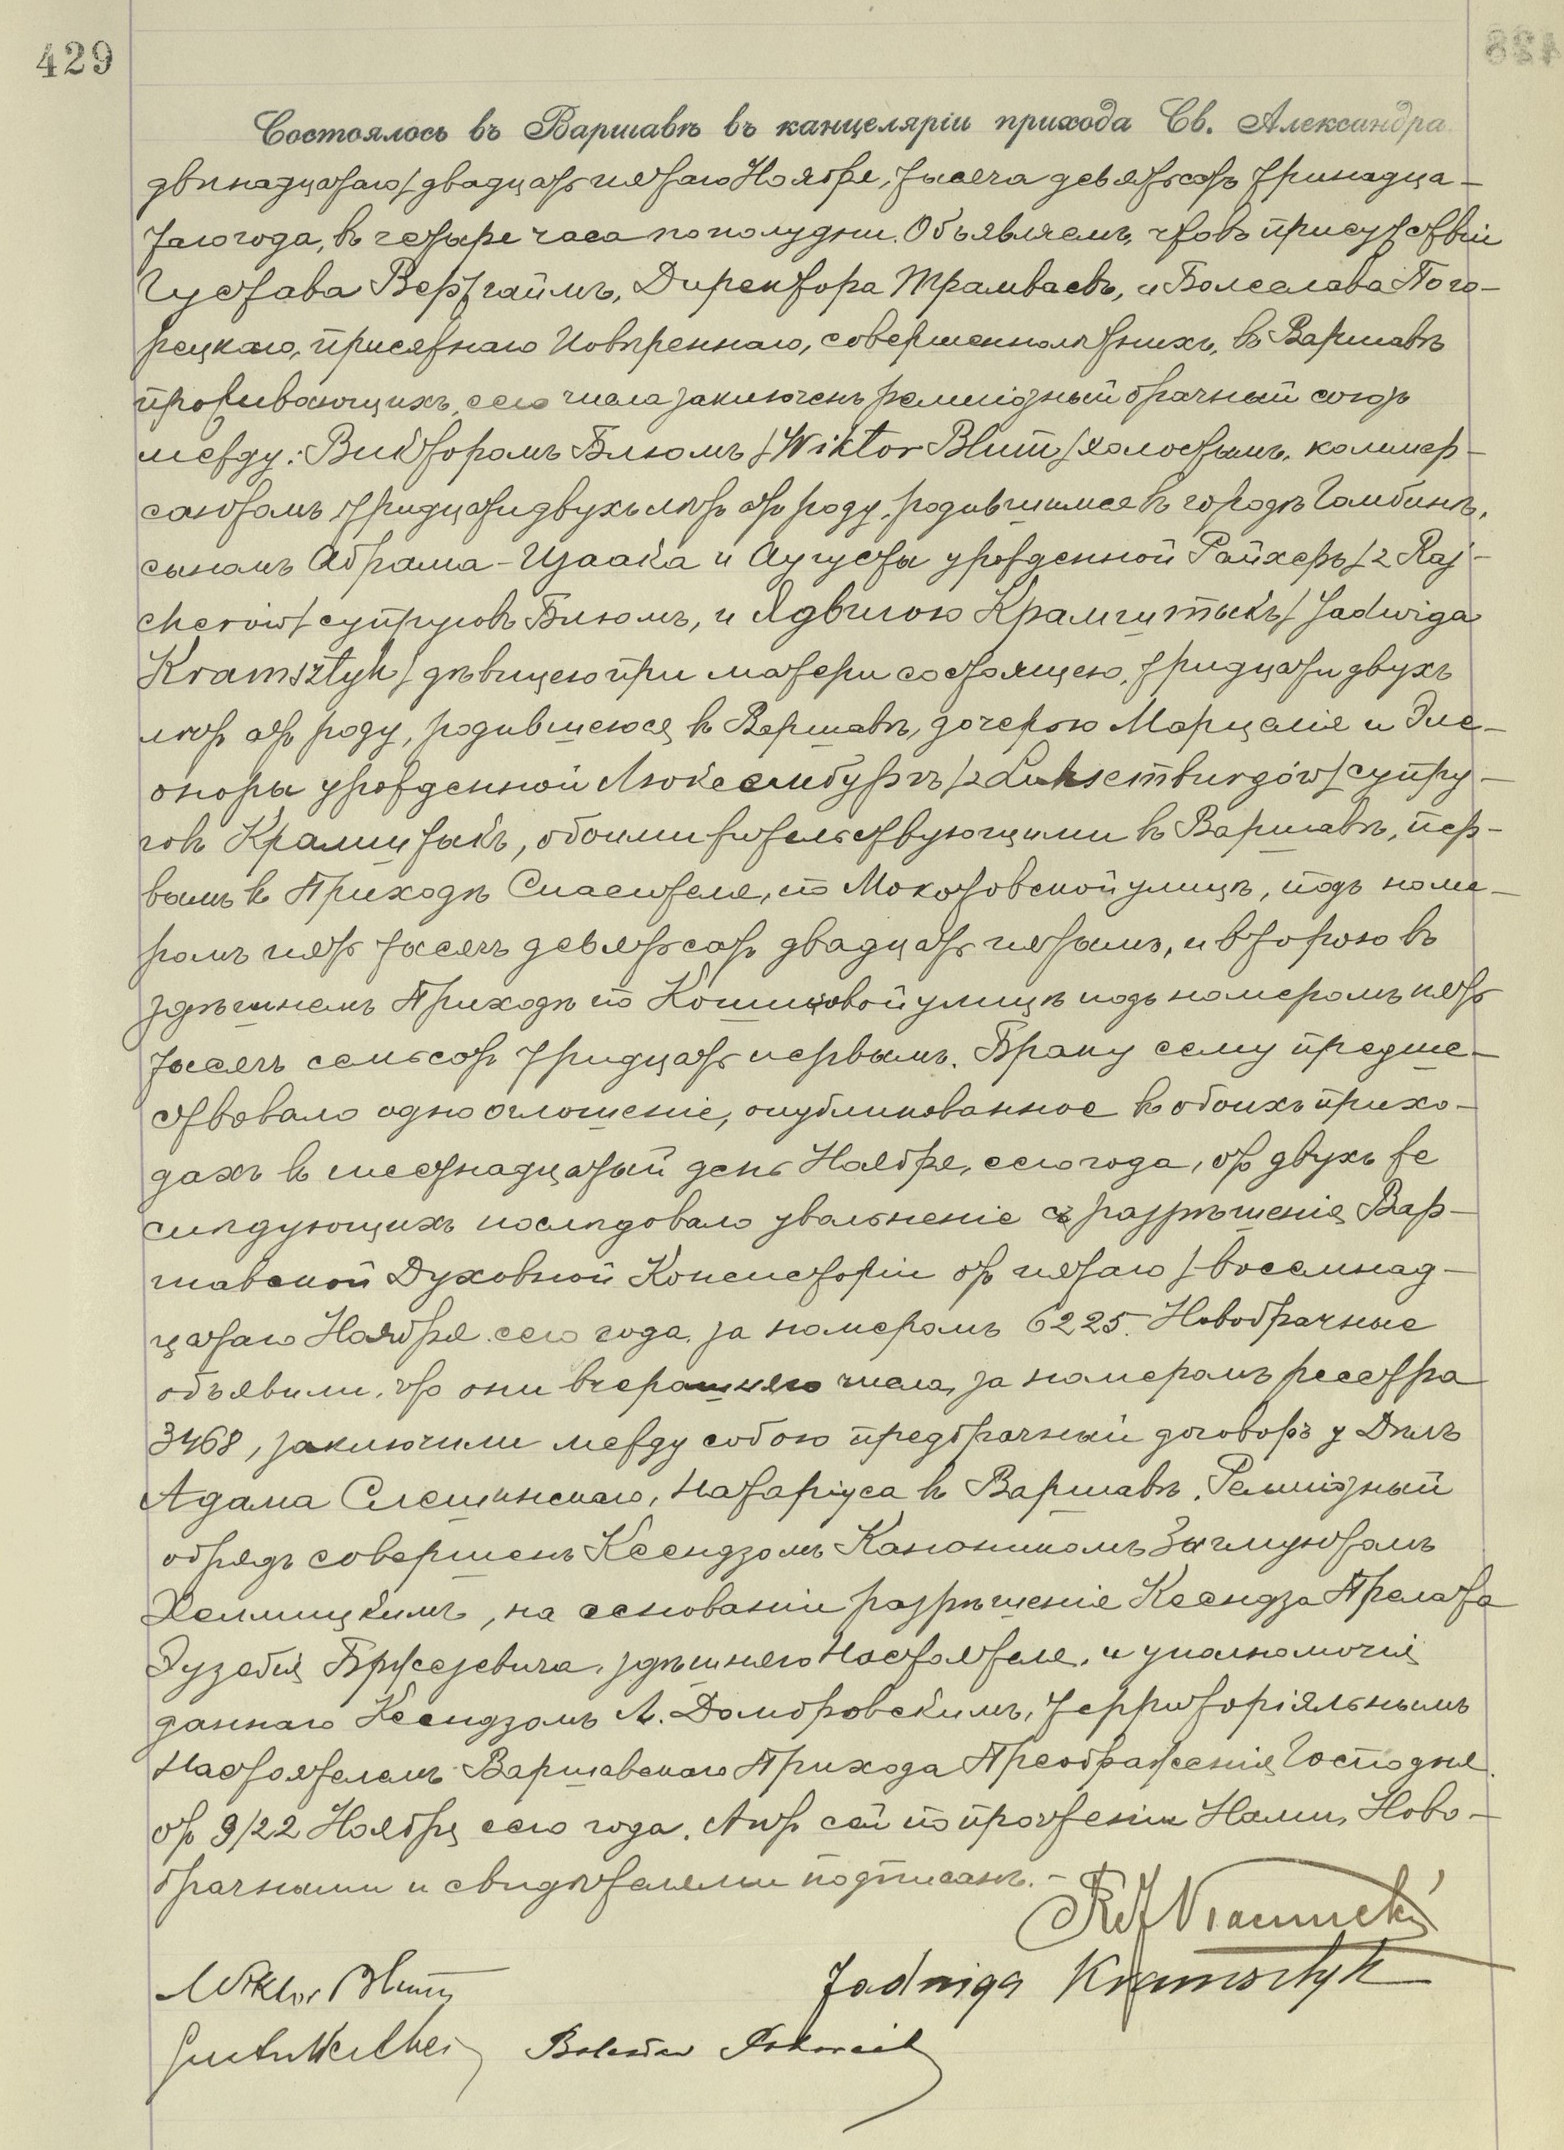 429
Состоялось въ Варшавѣ въ канцеляріи прихода Св. Александра
двѣнадцатаго/двадцать пятаго Ноября, тысяча девятьсотъ тринадца-
таго года, въ четыре часа пополудни. Объявляемъ, что въ присутствіи
Густава Вертгаймъ, Директора Трамваевъ, и Болеслава Пого-
рецкаго, присяжнаго повѣреннаго, совершеннолѣтнихъ, въ Варшавѣ
проживающихъ, сего числа заключенъ религіозный брачный союзъ
между: Викторомъ Блюмъ /Wiktor Blum/ холостымъ, коммер-
сантомъ, тридцати двухъ лѣтъ отъ роду, родившимся въ городѣ Гомбинѣ,
сыномъ Абрама-Изаака и Аугусты урожденной Райхеръ /z Raj-
cherów/ супруговъ Блюмъ, и Ядвигою Крамштыкъ /Jadwiga
Kramsztyk/ дѣвицею при матери состоящею, тридцати двухъ
лѣтъ отъ роду, родившеюся въ Варшавѣ, дочерью Марцелія и Эле-
оноры урожденной Люксембургъ /z Luksemburgów/ супру-
говъ Крамштыкъ, обоими жительствующими въ Варшавѣ, пер-
вымъ въ Приходѣ Спасителя, по Мокотовской улицѣ, подъ номе-
ромъ пять тысячъ девятьсотъ двадцать пятымъ, и второю въ
здѣшнемъ Приходѣ по Кошиковой улицѣ подъ номеромъ пять
тысячъ семьсотъ тридцать первымъ. Браку сему предше-
ствовало одно оглашеніе, опубликованное въ обоихъ прихо-
дахъ въ шестнадцатый день Ноября, сего года, отъ двухъ же
слѣдующихъ послѣдовало увольненіе съ разрѣшенія Вар-
шавской Духовной Консисторіи отъ пятаго /восемнад-
цатаго Ноября сего года за номеромъ 6225. Новобрачные
объявили, что они вчерашняго числа, за номеромъ реестра
3468, заключили между собою предбрачный договоръ у Дѣлъ
Адама Слешинскаго, Нотаріуса въ Варшавѣ. Религіозный
обрядъ совершенъ Ксендзомъ Каноникомъ Зыгмунтомъ
Хелмицкимъ, на основаніи разрѣшенія Ксендза Прелата
Эузебія Бржезевича, здѣшняго Настоятеля, и уполномочія
даннаго Ксендзомъ А. Домбровскимъ, территоріяльнымъ
Настоятелемъ Варшавскаго Прихода Преображенія Господня
отъ 9/22 Ноября сего года. Актъ сей по прочтеніи Нами, Ново-
брачными и свидѣтелями подписанъ.-
Wiktor Blum
Jadwiga Kramsztyk